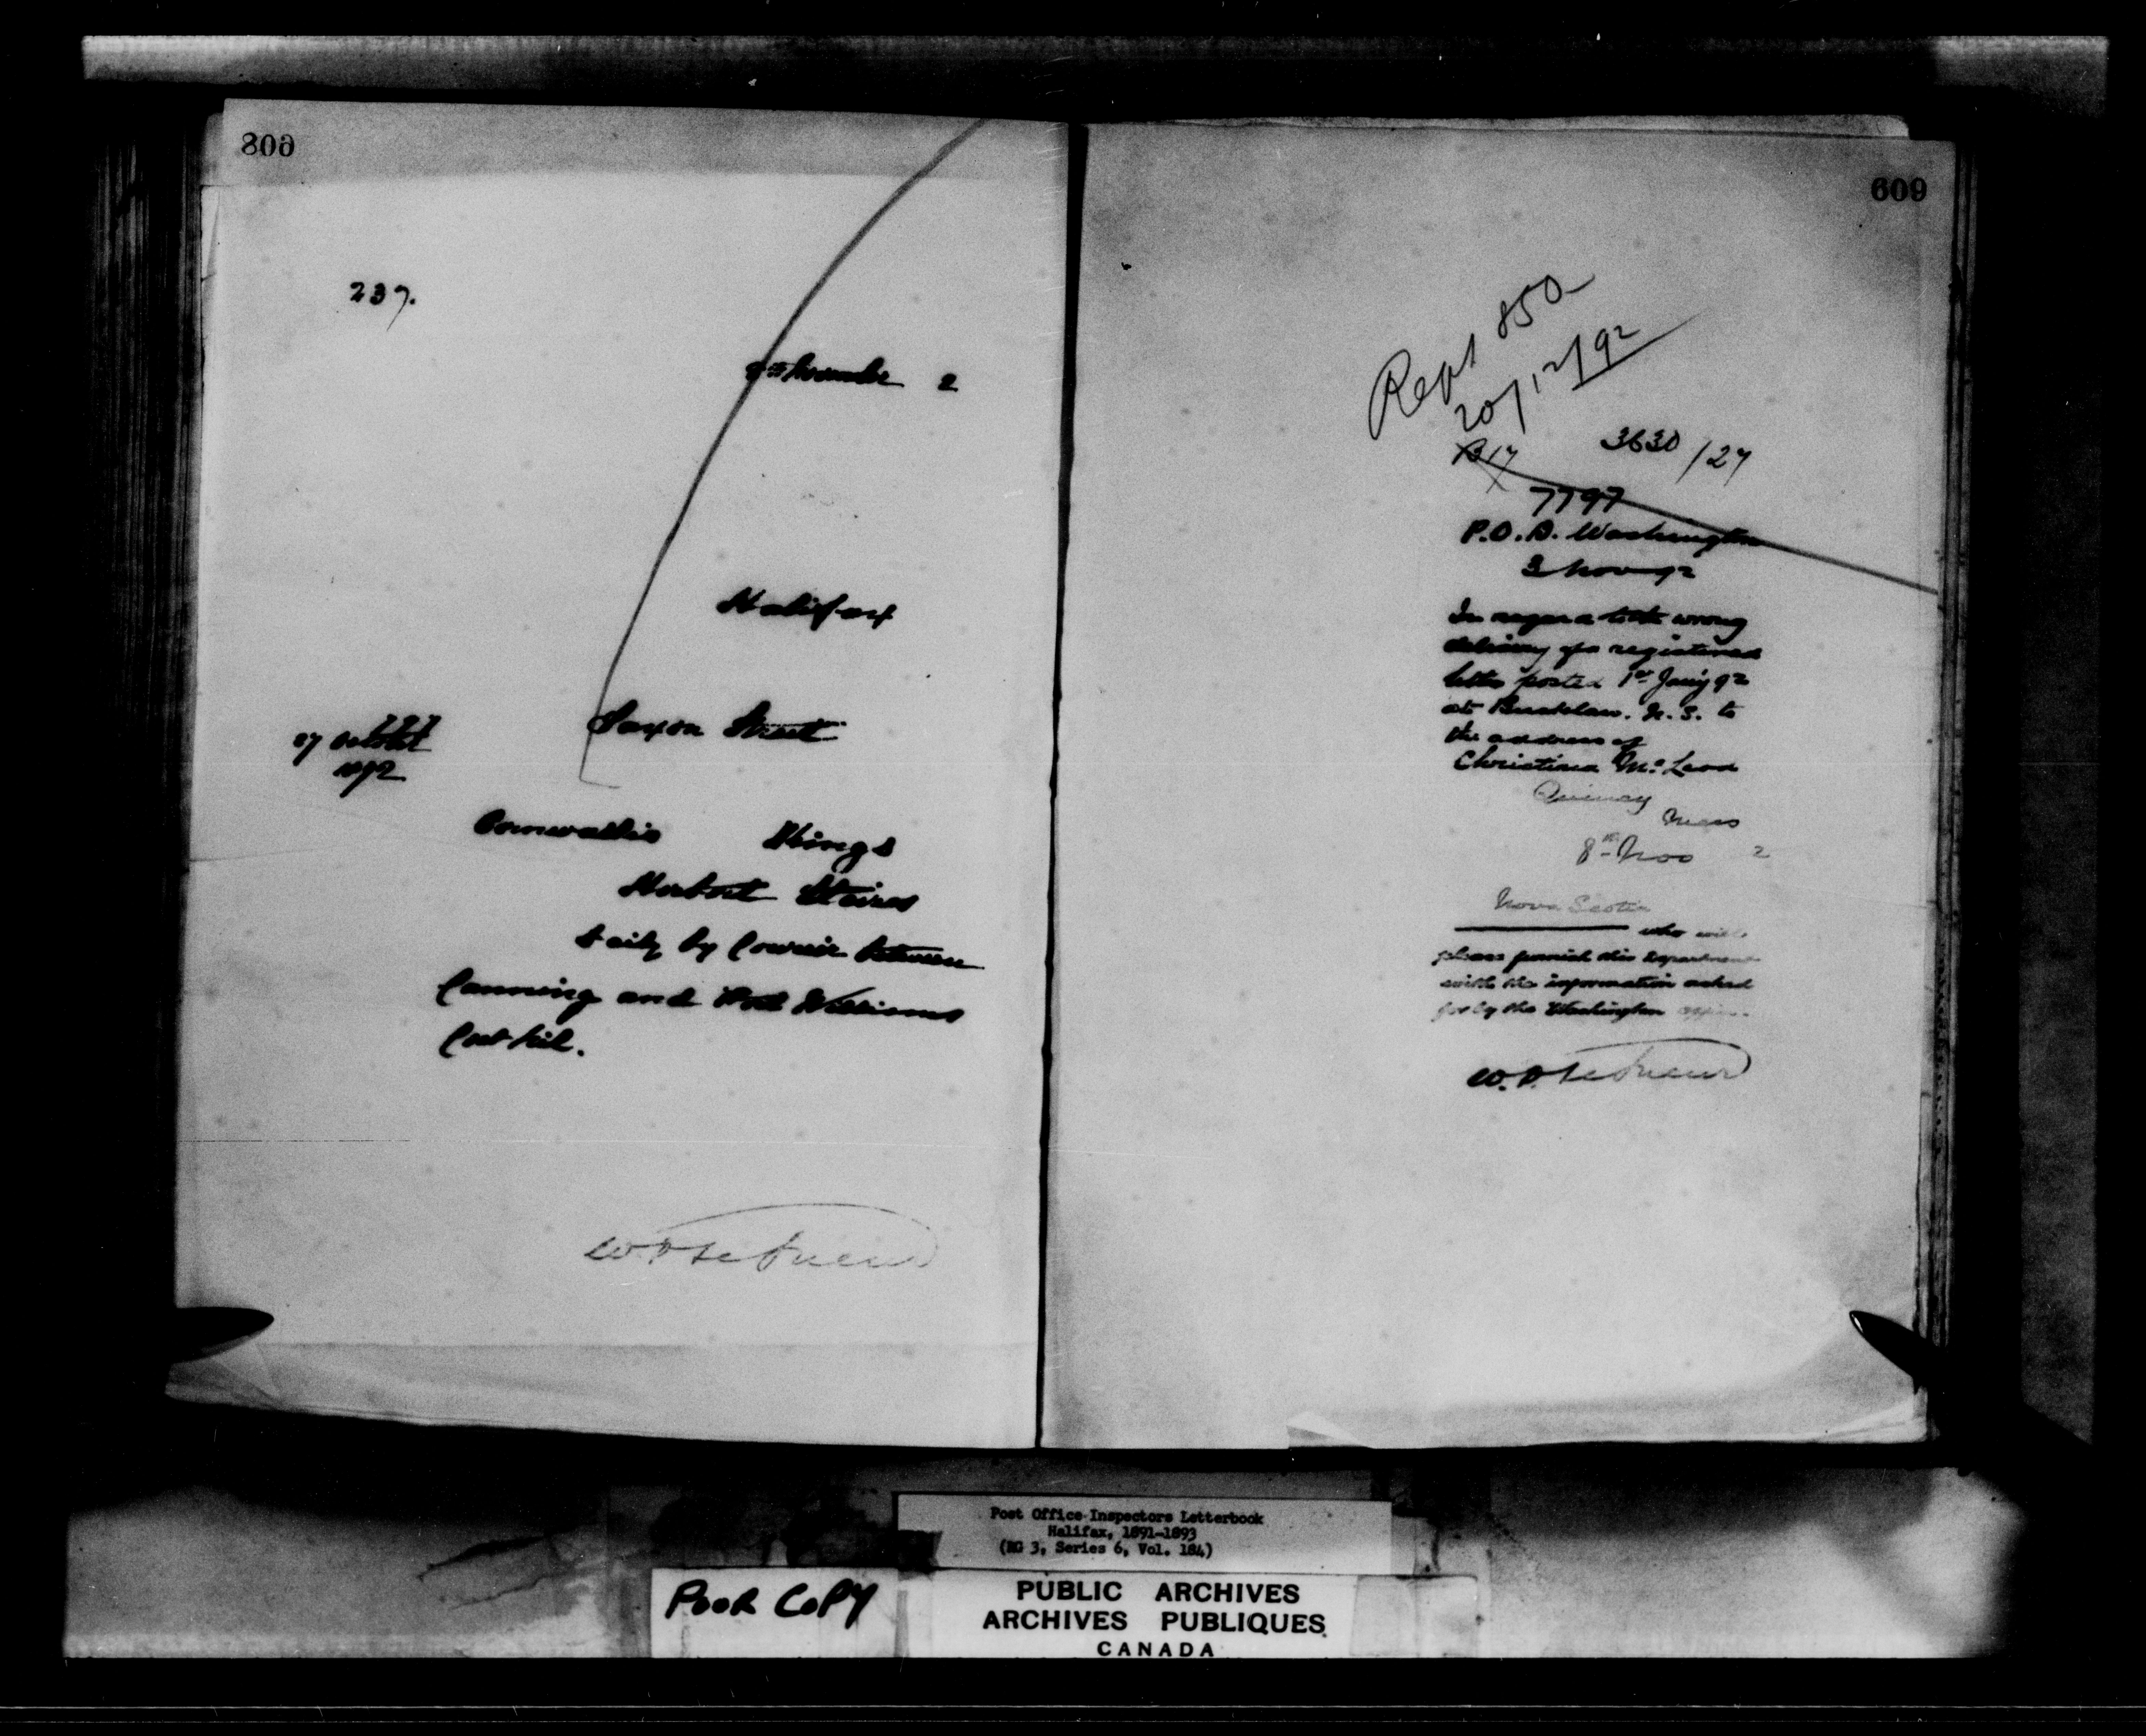 608
237.
8th November 2
Halifax
Saxon Street
727
27 October
1892
Cornwallis Kings
Herbert Stairs
daily by Courier between
Canning and Port Williams
609
Rept 850
20/12/92
B17
3630/27
7797
P.O.D. Washington
3 Nov 92
In regard to the wrong
delivery of a registered
letter posted 1st Jany 92
at N.S. to
the address of
Christina McLeod
Quincy
Mass
8th Nov 2
Nova Scotia
who will
please furnish this Department
with the information asked
for by the Washington office.
Post Office Inspectors Letterbook
Halifax, 1891-1893
(RG 3, Series 6, Vol. 184)
POOR COPY
PUBLIC ARCHIVES
ARCHIVES PUBLIQUES
CANADA